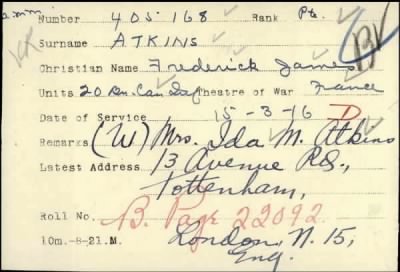 Number 405168 Rank Pte.
Surname ATKINS
Christian Name Frederick James
Units 20 Bn. Can. Inf Theatre of War France
Date of Service 15-3-16 D
Remarks (W) Mrs. Ida M. Atkins
Latest Address 13 Avenue Rd.,
Tottenham,
Roll No. B. Page 22092
10m.-8-21.M. London, N. 15,
Eng.